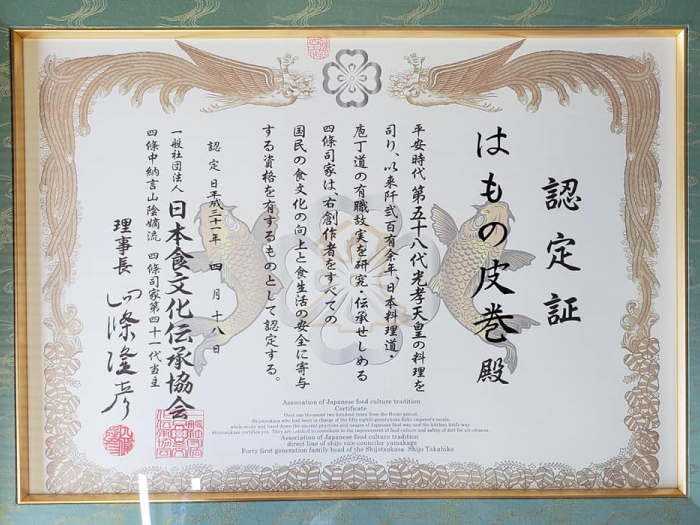 認定証
はもの皮巻 殿
平安時代 第五十八代光孝天皇の料理を
司り、以来阡弐百有余年、日本料理道・
庖丁道の有職故実を研究・伝承せしめる
四條司家は、右創作者をすべての
国民の食文化の向上と食生活の安全に寄与
する資格を有するものとして認定する。
認定日 平成三十一年 四月 十八日
一般社団法人 日本食文化伝承協会
四條中納言山陰嫡流 四條司家第四十一代当主
理事長 四條隆彦
Association of Japanese food culture tradition
Certificate
Over one thousand two hundred years from the Heian period,
Shijotsukasa who had been in charge of the fifty eighth generations Koko emperor's meals,
while study and hand down the ancient practices and usages of Japanese food way and the kitchen knife way.
Shijotsukasa certifies you. They are entitled to contribute to the improvement of food culture and safety of diet for all citizens.
Association of Japanese food culture tradition
direct line of shijo vice-councilor yamakage
Forty first generation family head of the Shijotsukasa Shijo Takahiko